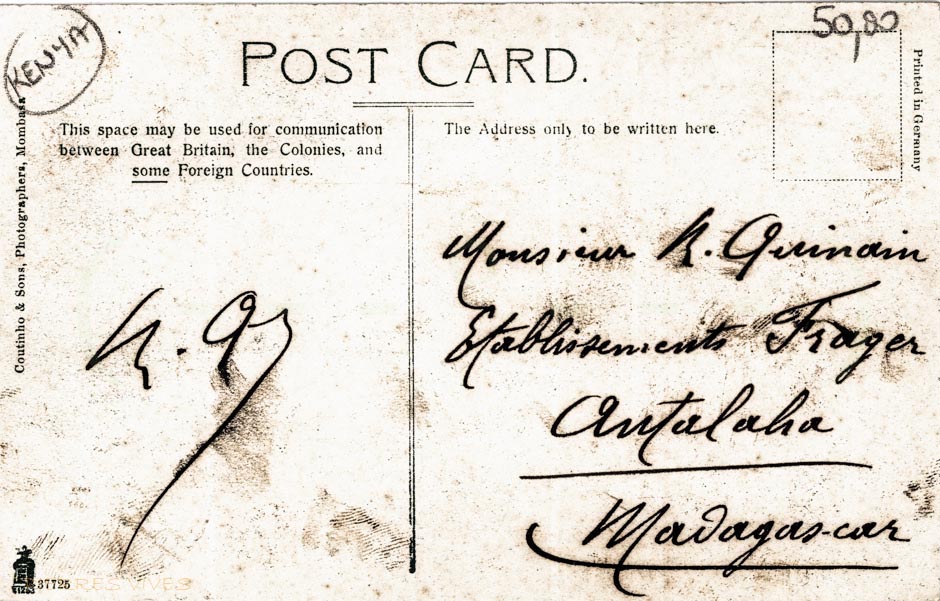 KENYA
50,80
POST CARD.
This space may be used for communication
between Great Britain, the Colonies, and
some Foreign Countries.
The Address only to be written here.
Printed in Germany
Coutinho & Sons, Photographers, Mombasa
Monsieur R. Guinain
Etablissements Frager
Antalaha
Madagascar
R. G
37725